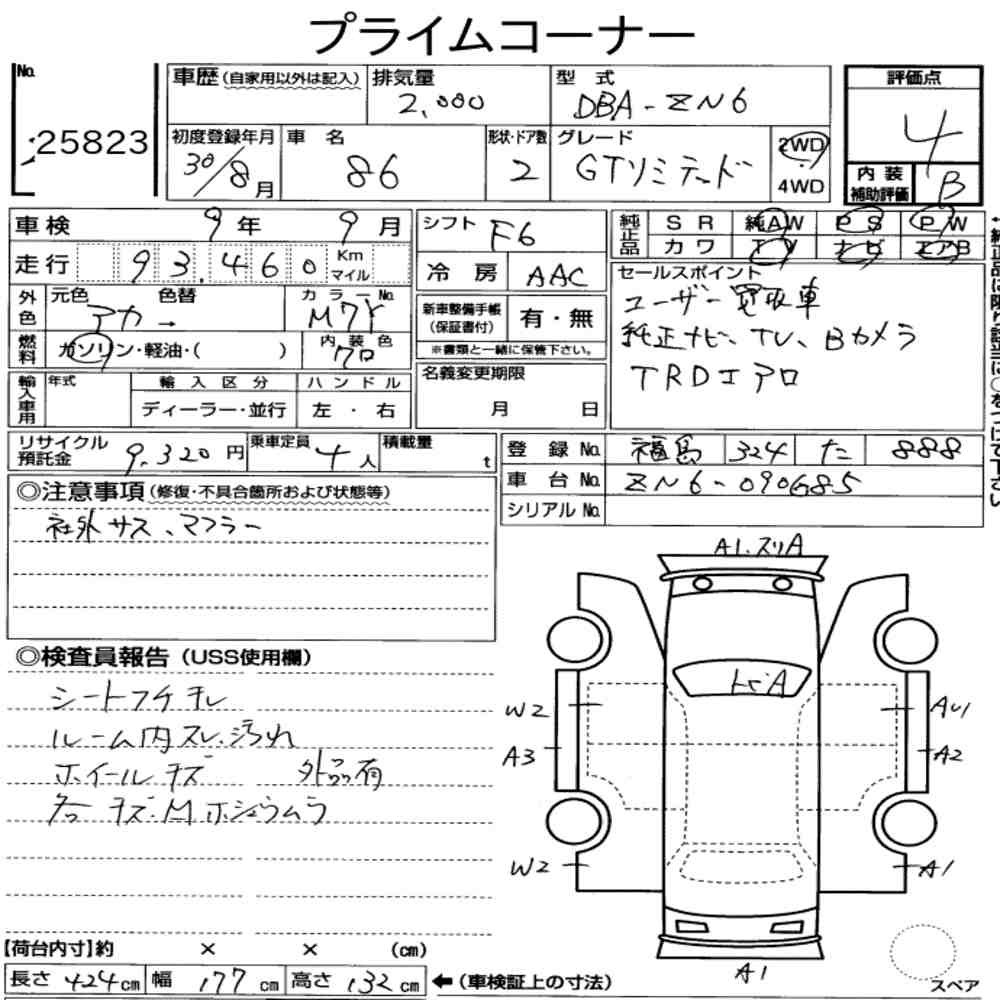 プライムコーナー
No.
25823
車歴 (自家用以外は記入)
排気量
2,000
型式
DBA-ZN6
評価点
4
初度登録年月
30/8月
車名
86
形状・ドア数
2
グレード
GTリミテッド
2WD
4WD
内装
補助評価
B
車検 9年 9月
シフト F6
純正品 SR 純AW PS PW
カワ TV ナビ エアB
走行 93,460 Km マイル
冷房 AAC
セールスポイント
ユーザー買取車
純正ナビ、TV、Bカメラ
TRDエアロ
外色 元色 色替 カラーNo.
アカ → M7Y
新車整備手帳
(保証書付)
有・無
※書類と一緒に保管下さい。
燃料 ガソリン・軽油・( ) 内装色 クロ
名義変更期限
月 日
輸入車用 年式 輸入区分 ハンドル
ディーラー・並行 左・右
リサイクル
預託金
9,320円
乗車定員 4人
積載量 t
登録No. 福島 324 た 888
車台No. ZN6-090685
シリアルNo.
◎注意事項 (修復・不具合箇所および状態等)
社外サス、マフラー
◎検査員報告 (USS使用欄)
シートフチチレ
ルーム内スレ、汚れ
ホイールキズ 外品有
各キズ、Mホシュウムラ
A1.スリA
トビA
W2
A3
W2
AU1
A2
A1
A1
【荷台内寸】約 × × (cm)
長さ 424cm 幅 177cm 高さ 132cm
←(車検証上の寸法)
スペア